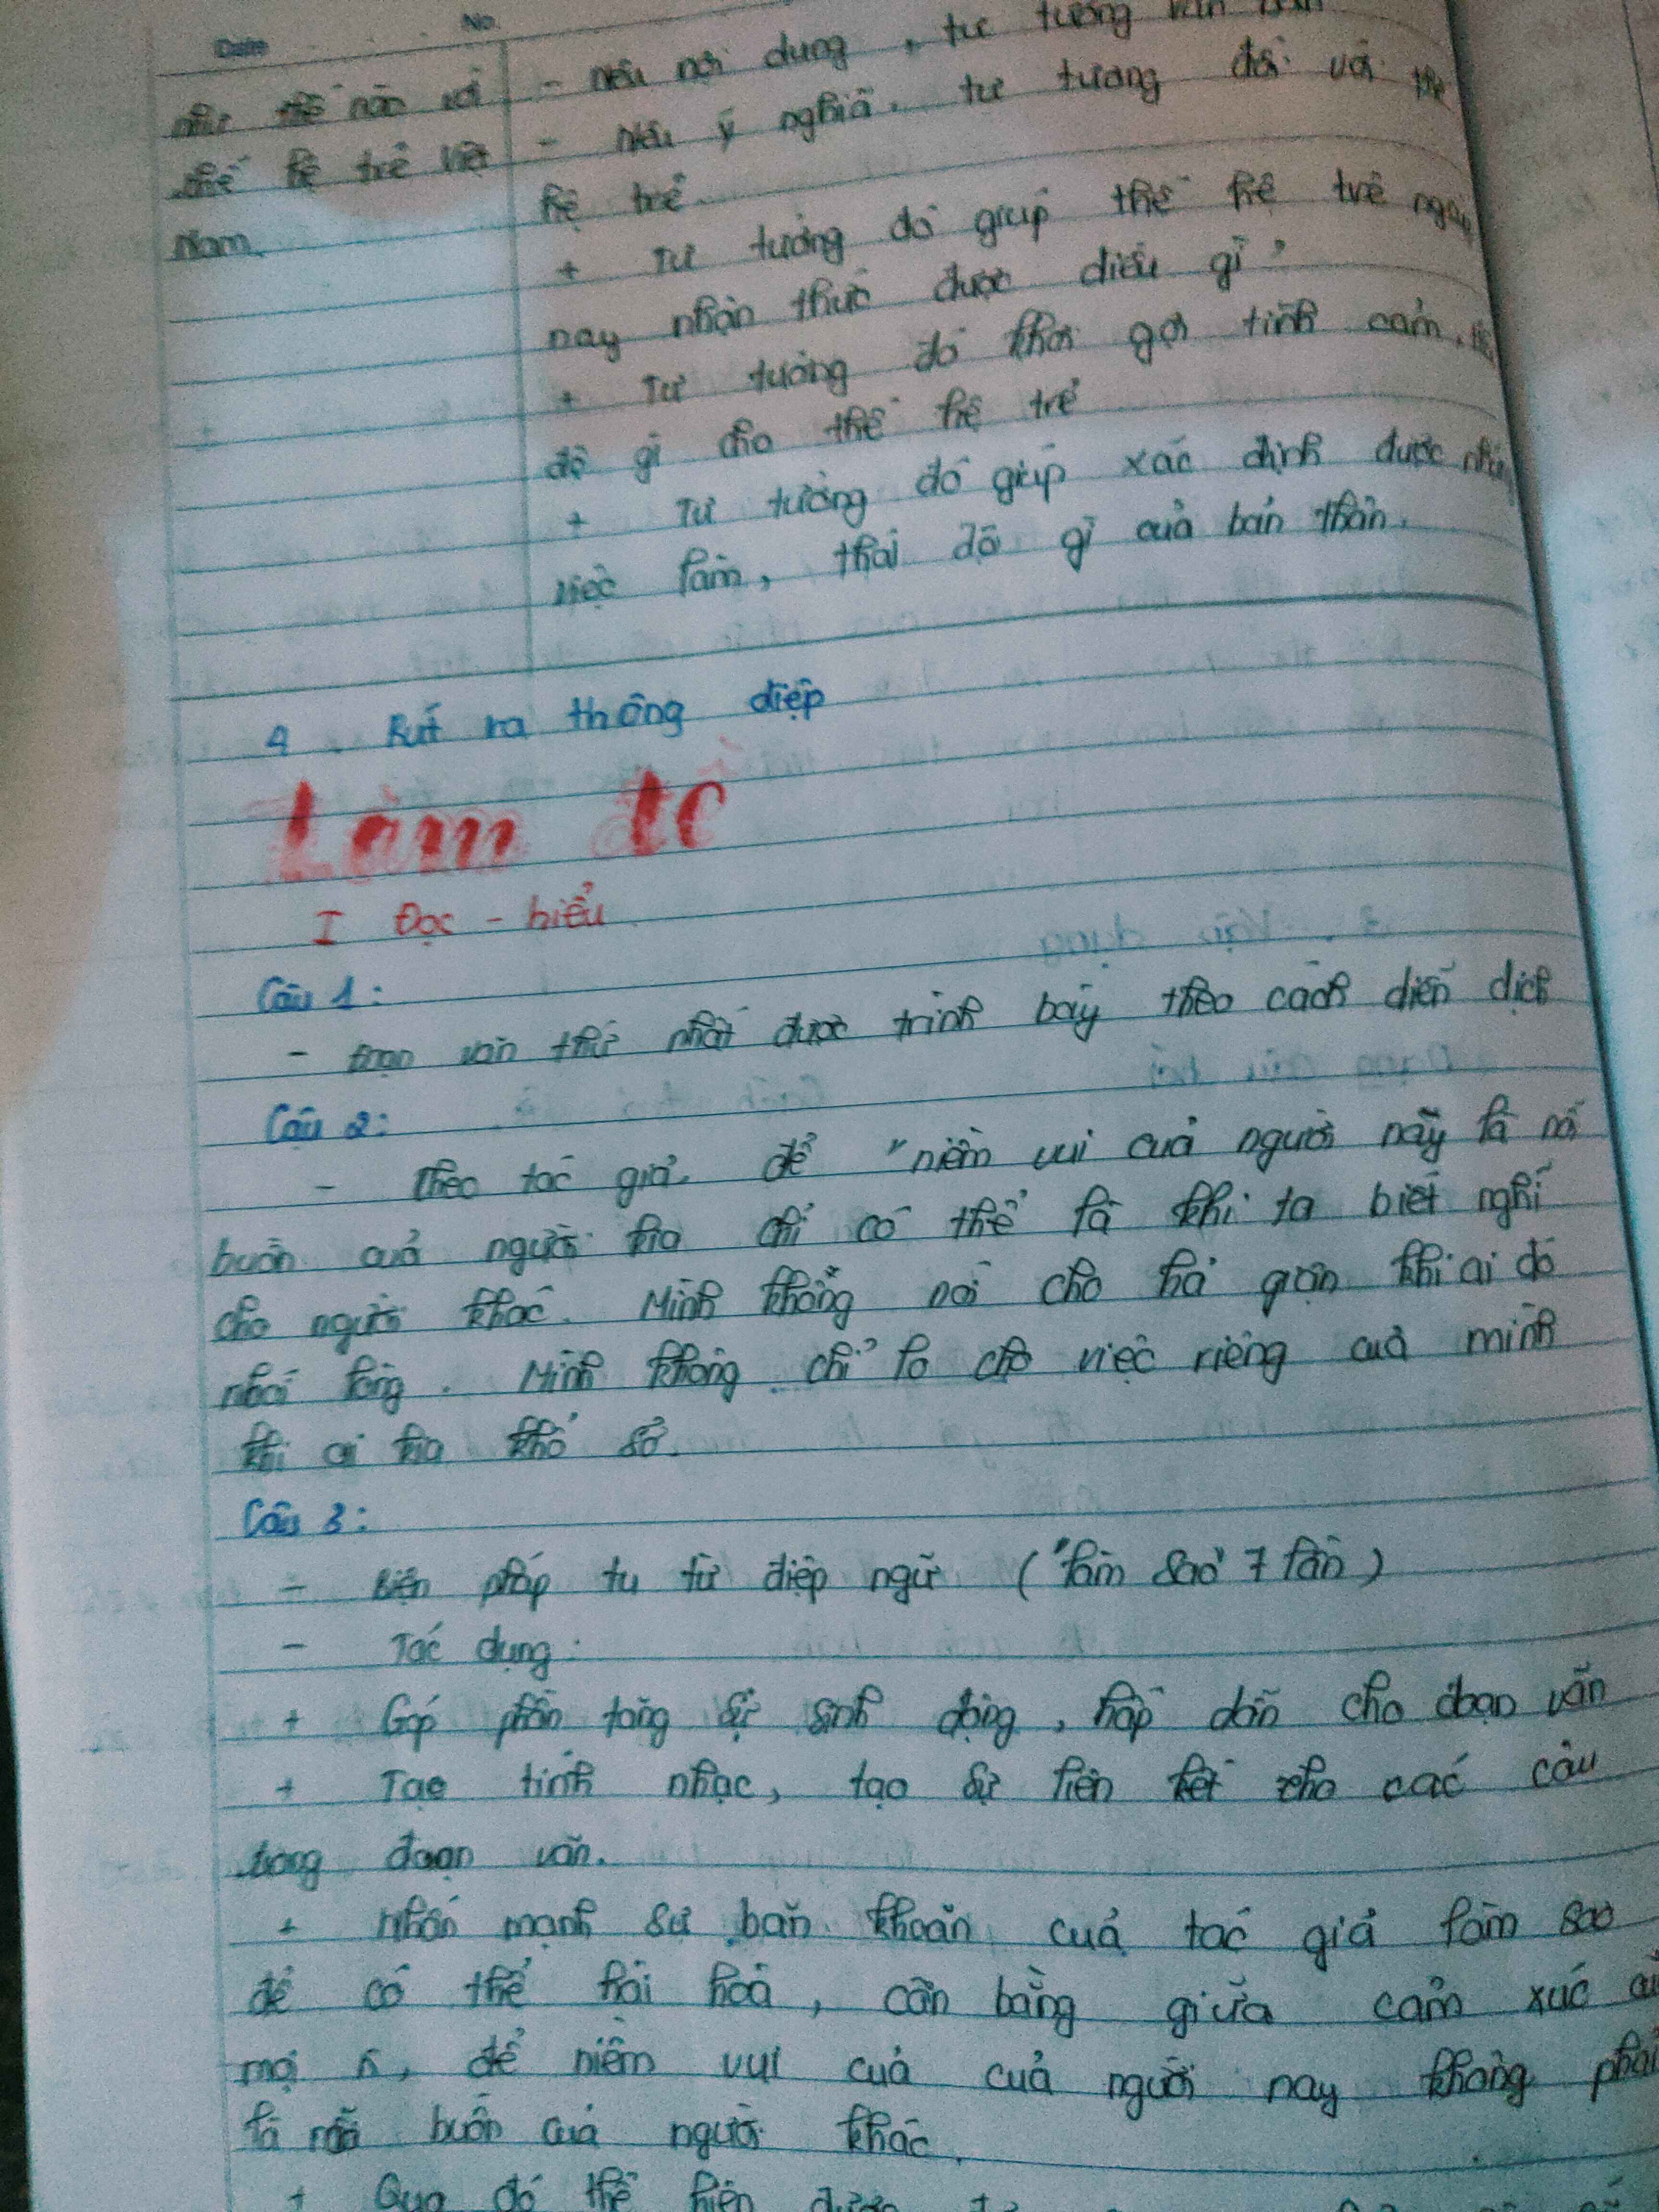 Date No
như thế nào với - nêu nội dung, tư tưởng văn bản
thế hệ trẻ Việt - Nêu ý nghĩa, tư tương đối với thế
Nam hệ trẻ.
+ Tư tưởng đó giúp thế hệ trẻ ngày
nay nhận thức được điều gì?
+ Tư tưởng đó khơi gợi tình cảm,
độ gì cho thế hệ trẻ
+ Tư tưởng đó giúp xác định được
việc làm, thái độ gì của bản thân.
4. Rút ra thông điệp
Làm đề
I Đọc - hiểu
Câu 1:
- Đoạn văn thứ nhất được trình bày theo cách diễn dịch
Câu 2:
- Theo tác giả, để "niềm vui của người này là nỗi
buồn của người kia chỉ có thể là khi ta biết nghĩ
cho người khác. Mình không nói cho hả giận khi ai đó
nhói lòng. Mình không chỉ lo cho việc riêng của mình
khi ai kia khổ sở.
Câu 3:
- Biện pháp tu từ điệp ngữ ("làm sao" 7 lần)
- Tác dụng:
+ Góp phần tăng sự sinh động, hấp dẫn cho đoạn văn
+ Tạo tính nhạc, tạo sự liên kết cho các câu
trong đoạn văn.
+ Nhấn mạnh sự băn khoăn của tác giả làm sao
để có thể hài hoà, cân bằng giữa cảm xúc
mọi n, để niềm vui của của người nay không phải
là nỗi buồn của người khác.
+ Qua đó thể hiện được